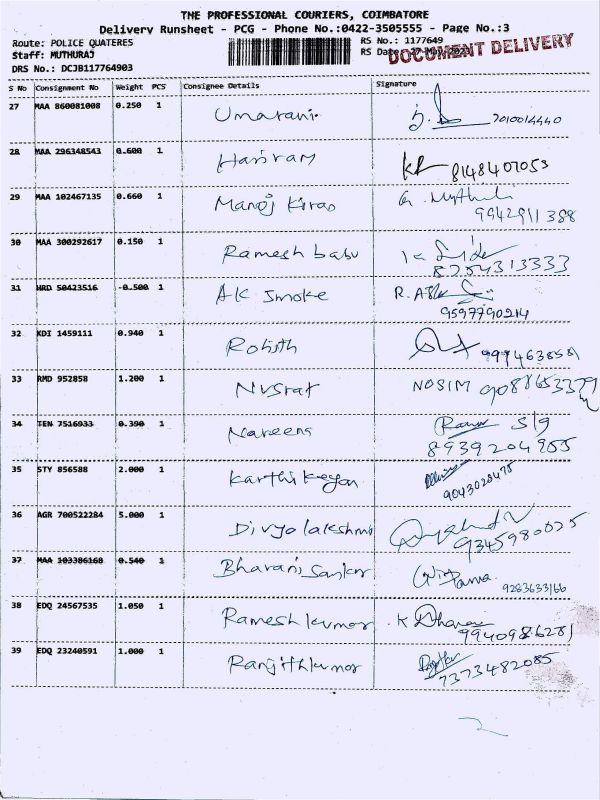 THE PROFESSIONAL COURIERS, COIMBATORE
Delivery Runsheet - PCG - Phone No.:0422-3505555 - Page No.:3
Route: POLICE QUATERES
RS No.: 1177649
Staff: MUTHURAJ
RS Date: 27-May-2023
DOCUMENT DELIVERY
DRS No.: DCJB117764903
S No Consignment No Weight PCS Consignee Details Signature
27 MAA 860081008 0.250 1 Umarani 7010014440
28 MAA 296348543 0.600 1 Hariram KR 8148407053
29 MAA 102467135 0.660 1 Manoj Kiran
9942911388
30 MAA 300292617 0.150 1 Ramesh babu
8754313333
31 HRD 50423516 -0.500 1 AK Smoke
9597790214
32 KDI 1459111 0.940 1 Rohith 9994638581
33 RMD 952858 1.200 1 Nusrat NOSIM 9088653379
34 TEN 7516933 0.390 1 Nareens
8939204955
35 STY 856588 2.000 1 Karthikeyan
9043020475
36 AGR 700522284 5.000 1 Divyalakshmi
9345980025
37 MAA 103386168 0.540 1 Bharani Sankar
9283633166
38 EDQ 24567535 1.050 1 Ramesh kumar
9940986281
39 EDQ 23240591 1.000 1 Ranjithkumar
7373482085